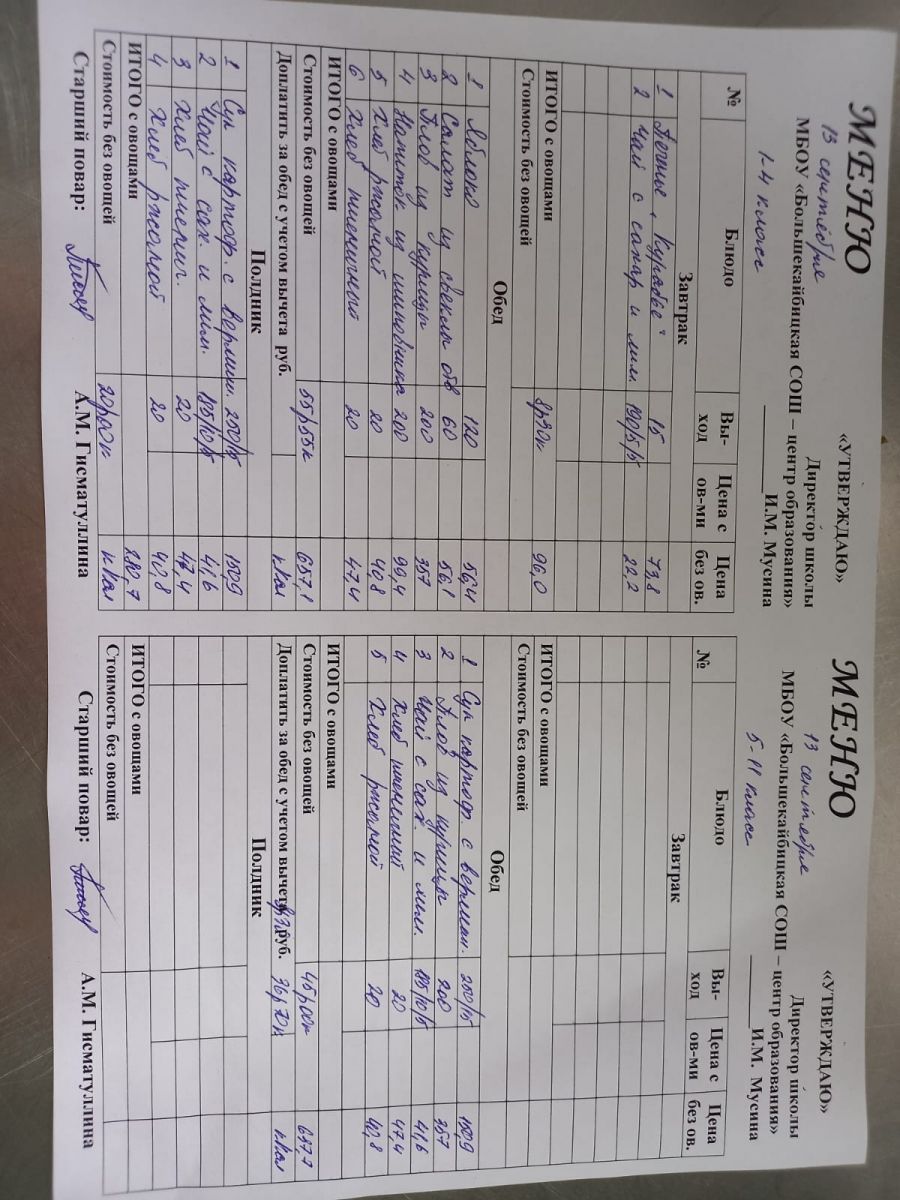 «УТВЕРЖДАЮ»
Директор школы
МБОУ «Большекайбицкая СОШ – центр образования»
И.М. Мусина
МЕНЮ
13 сентября
1-4 класс
№ Блюдо Вы-ход Цена с ов-ми Цена без ов.
Завтрак
1 Печенье „Курабье“ 15 73,8
2 Чай с сахар и лим. 190/5/5 22,2
ИТОГО с овощами 8р30к 96,0
Стоимость без овощей
Обед
1 Яблоко 120 56,4
2 Салат из свеклы отв 60 56,1
3 Плов из курицы 200 357
4 Напиток из шиповника 200 99,4
5 Хлеб ржаной 20 40,8
6 Хлеб пшеничный 20 47,4
ИТОГО с овощами
Стоимость без овощей 55р55к 657,1
Доплатить за обед с учетом вычета руб. ккал
Полдник
1 Суп картоф. с вермиш. 250/15 150,9
2 Чай с сах. и лим. 185/10/5 41,6
3 Хлеб пшенич. 20 47,4
4 Хлеб ржаной 20 40,8
ИТОГО с овощами 280,7
Стоимость без овощей 20р00к ккал
Старший повар: А.М. Гисматуллина
«УТВЕРЖДАЮ»
Директор школы
МБОУ «Большекайбицкая СОШ – центр образования»
И.М. Мусина
МЕНЮ
13 сентября
5-11 класс
№ Блюдо Вы-ход Цена с ов-ми Цена без ов.
Завтрак
ИТОГО с овощами
Стоимость без овощей
Обед
1 Суп картоф с вермиш. 250/15 150,9
2 Плов из курицы 200 357
3 Чай с сах. и лим. 185/10/5 41,6
4 Хлеб пшеничный 20 47,4
5 Хлеб ржаной 20 40,8
ИТОГО с овощами
Стоимость без овощей 45р00к 637,7
Доплатить за обед с учетом вычета руб. 36р70к ккал
Полдник
ИТОГО с овощами
Стоимость без овощей
Старший повар: А.М. Гисматуллина